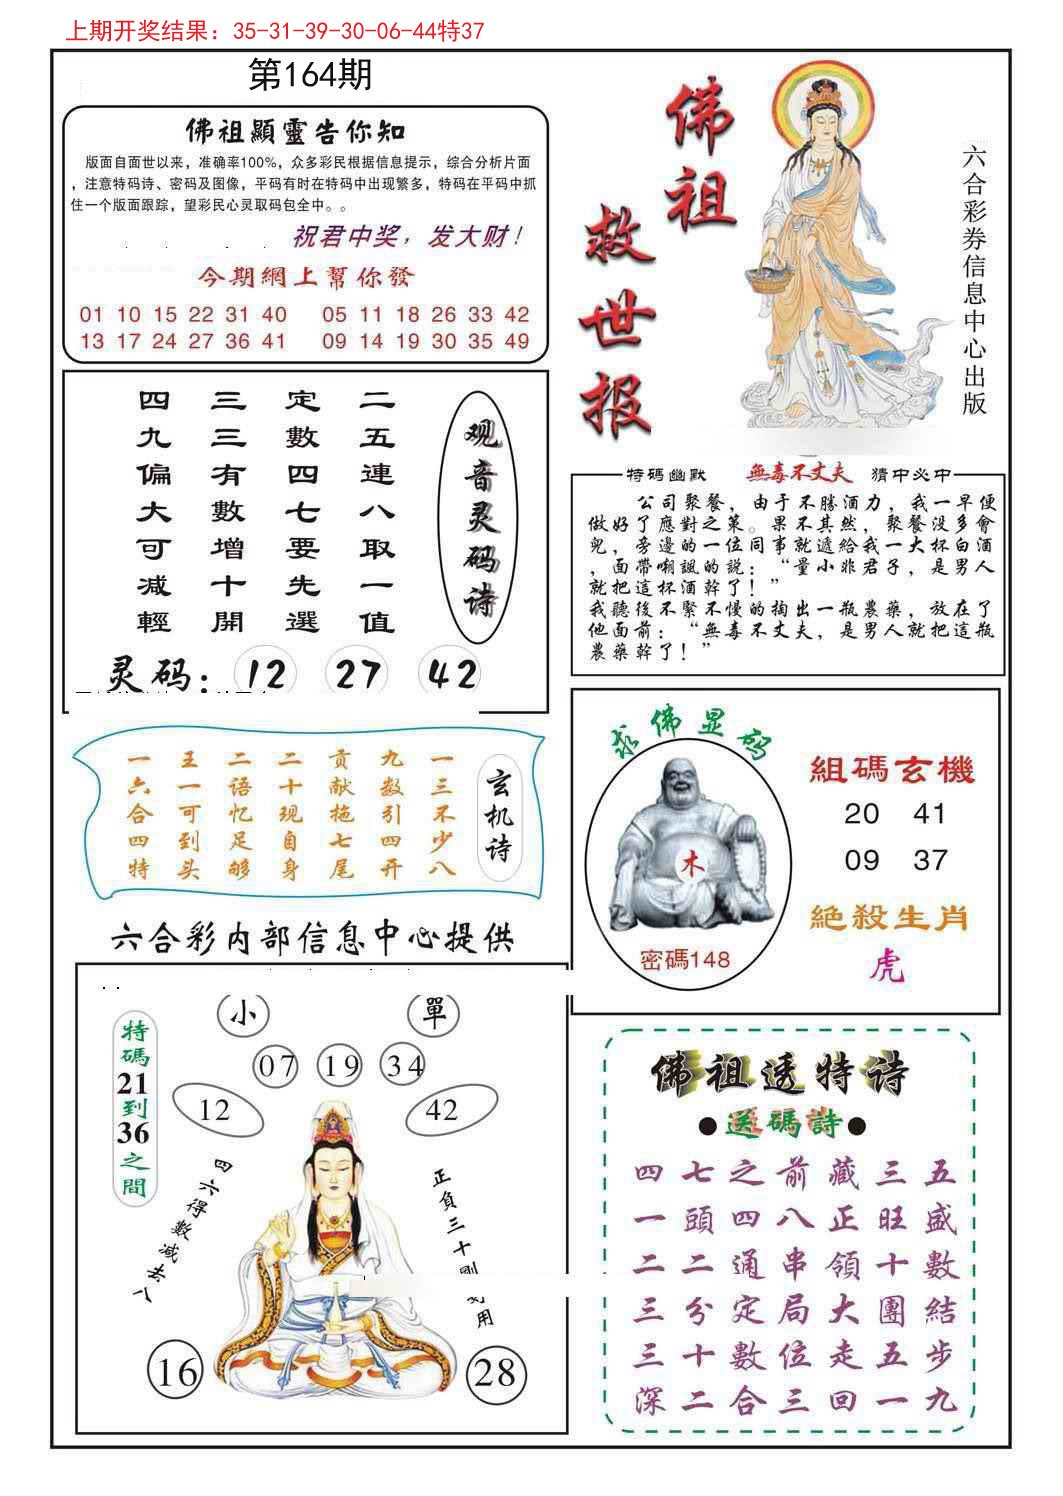 上期开奖结果：35-31-39-30-06-44特37
第164期
佛祖顯靈告你知
版面自面世以来，准确率100%，众多彩民根据信息提示，综合分析片面
，注意特码诗、密码及图像，平码有时在特码中出现繁多，特码在平码中抓
住一个版面跟踪，望彩民心灵取码包全中。。
祝君中奖，发大财！
今期網上幫你發
01 10 15 22 31 40 05 11 18 26 33 42
13 17 24 27 36 41 09 14 19 30 35 49
佛祖
救世报
六合彩券信息中心出版
观音灵码诗
二五連八取一值
定數四七要先選
三三有數增十開
四九偏大可减輕
灵码：12 27 42
特码幽默 無毒不丈夫 猜中必中
公司聚餐，由于不勝酒力，我一早便
做好了應對之策。果不其然，聚餐没多會
兒，旁邊的一位同事就遞給我一大杯白酒
，面帶嘲諷的説：“量小非君子，是男人
就把這杯酒幹了！”
我聽後不緊不慢的掏出一瓶農藥，放在了
他面前：“無毒不丈夫，是男人就把這瓶
農藥幹了！”
玄机诗
一三不少八
九数引四开
贡献拖七尾
二十现自身
二语忆足够
王一可到头
一六合四特
求佛显码
木
密碼148
組碼玄機
20 41
09 37
絕殺生肖
虎
六合彩内部信息中心提供
小 單
07 19 34
12 42
特碼21到36之間
四六得數减去八
正負三十
用
16 28
佛祖透特诗
●送碼詩●
四七之前藏三五
一頭四八正旺盛
二二通串領十數
三分定局大團結
三十數位走五步
深二合三回一九